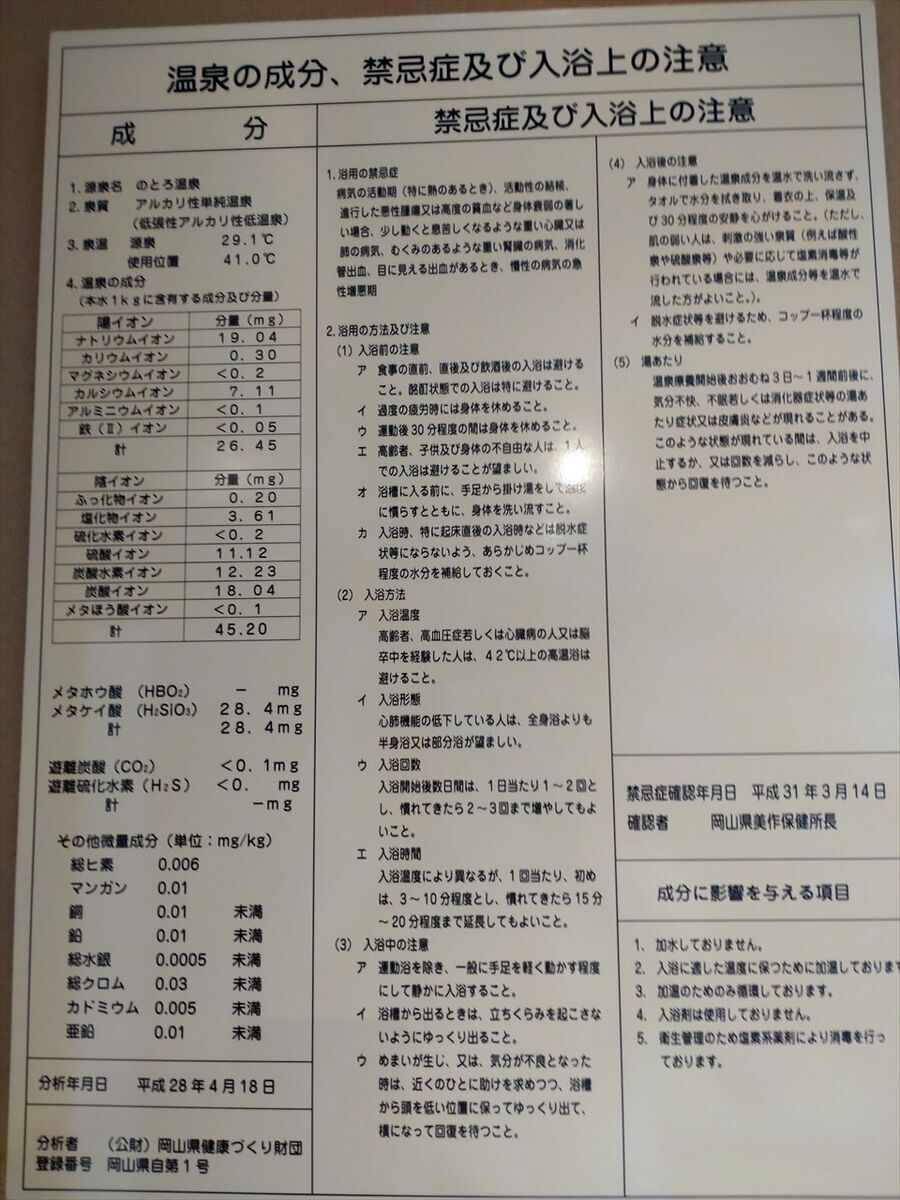 温泉の成分、禁忌症及び入浴上の注意
成 分
1. 源泉名 のとろ温泉
2. 泉質 アルカリ性単純温泉
(低張性アルカリ性低温泉)
3. 泉温 源泉 29.1℃
使用位置 41.0℃
4. 温泉の成分
(本水1kgに含有する成分及び分量)
陽イオン 分量(mg)
ナトリウムイオン 19.04
カリウムイオン 0.30
マグネシウムイオン <0.2
カルシウムイオン 7.11
アルミニウムイオン <0.1
鉄(Ⅱ)イオン <0.05
計 26.45
陰イオン 分量(mg)
ふっ化物イオン 0.20
塩化物イオン 3.61
硫化水素イオン <0.2
硫酸イオン 11.12
炭酸水素イオン 12.23
炭酸イオン 18.04
メタほう酸イオン <0.1
計 45.20
メタホウ酸 (HBO₂) − mg
メタケイ酸 (H₂SiO₃) 28.4mg
計 28.4mg
遊離炭酸(CO₂) <0.1mg
遊離硫化水素(H₂S) <0. mg
計 −mg
その他微量成分(単位:mg/kg)
総ヒ素 0.006
マンガン 0.01
銅 0.01 未満
鉛 0.01 未満
総水銀 0.0005 未満
総クロム 0.03 未満
カドミウム 0.005 未満
亜鉛 0.01 未満
分析年月日 平成28年4月18日
分析者 (公財)岡山県健康づくり財団
登録番号 岡山県自第1号
禁忌症及び入浴上の注意
1. 浴用の禁忌症
病気の活動期(特に熱のあるとき)、活動性の結核、
進行した悪性腫瘍又は高度の貧血など身体衰弱の著し
い場合、少し動くと息苦しくなるような重い心臓又は
肺の病気、むくみのあるような重い腎臓の病気、消化
管出血、目に見える出血があるとき、慢性の病気の急
性増悪期
2. 浴用の方法及び注意
(1) 入浴前の注意
ア 食事の直前、直後及び飲酒後の入浴は避ける
こと。酩酊状態での入浴は特に避けること。
イ 過度の疲労時には身体を休めること。
ウ 運動後30分程度の間は身体を休めること。
エ 高齢者、子供及び身体の不自由な人は、1人
での入浴は避けることが望ましい。
オ 浴槽に入る前に、手足から掛け湯をして温度
に慣らすとともに、身体を洗い流すこと。
カ 入浴時、特に起床直後の入浴時などは脱水症
状等にならないよう、あらかじめコップ一杯
程度の水分を補給しておくこと。
(2) 入浴方法
ア 入浴温度
高齢者、高血圧症若しくは心臓病の人又は脳
卒中を経験した人は、42℃以上の高温浴は
避けること。
イ 入浴形態
心肺機能の低下している人は、全身浴よりも
半身浴又は部分浴が望ましい。
ウ 入浴回数
入浴開始後数日間は、1日当たり1~2回と
し、慣れてきたら2~3回まで増やしてもよ
いこと。
エ 入浴時間
入浴温度により異なるが、1回当たり、初め
は、3~10分程度とし、慣れてきたら15分
~20分程度まで延長してもよいこと。
(3) 入浴中の注意
ア 運動浴を除き、一般に手足を軽く動かす程度
にして静かに入浴すること。
イ 浴槽から出るときは、立ちくらみを起こさな
いようにゆっくり出ること。
ウ めまいが生じ、又は、気分が不良となった
時は、近くのひとに助けを求めつつ、浴槽
から頭を低い位置に保ってゆっくり出て、
横になって回復を待つこと。
(4) 入浴後の注意
ア 身体に付着した温泉成分を温水で洗い流さず、
タオルで水分を拭き取り、着衣の上、保温及
び30分程度の安静を心がけること。(ただし、
肌の弱い人は、刺激の強い泉質(例えば酸性
泉や硫酸泉等)や必要に応じて塩素消毒等が
行われている場合には、温泉成分等を温水で
流した方がよいこと。)。
イ 脱水症状等を避けるため、コップ一杯程度の
水分を補給すること。
(5) 湯あたり
温泉療養開始後おおむね3日~1週間前後に、
気分不快、不眠若しくは消化器症状等の湯あ
たり症状又は皮膚炎などが現れることがある。
このような状態が現れている間は、入浴を中
止するか、又は回数を減らし、このような状
態から回復を待つこと。
禁忌症確認年月日 平成31年3月14日
確認者 岡山県美作保健所長
成分に影響を与える項目
1. 加水しておりません。
2. 入浴に適した温度に保つために加温しております
3. 加温のためのみ循環しております。
4. 入浴剤は使用しておりません。
5. 衛生管理のため塩素系薬剤により消毒を行っ
ております。